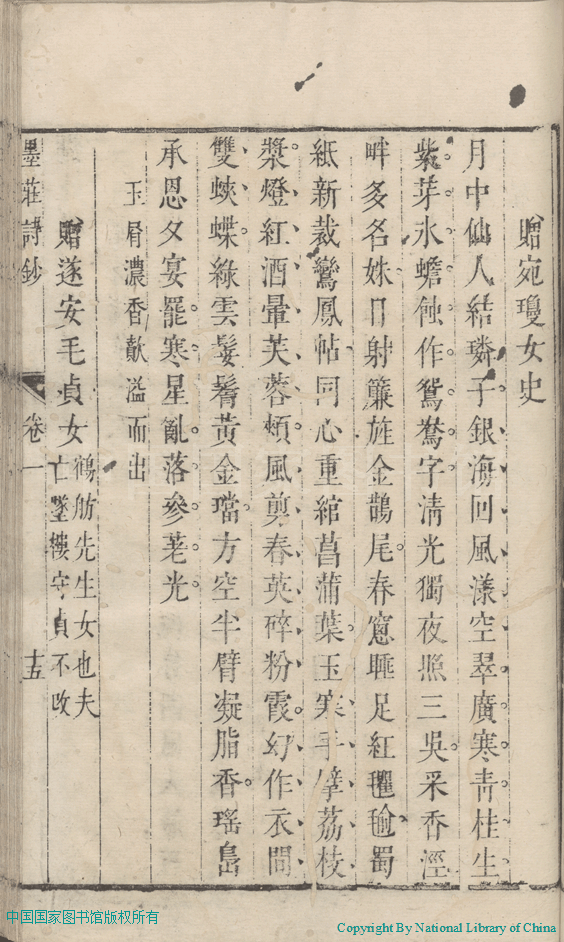 贈宛瓊女史
月中仙人結璘子銀海回風漾空翠廣寒青桂生
紫芽氷蟾蝕作鴛鴦字清光獨夜照三吳采香涇
畔多名姝日射簾旌金鵲尾春窻睡足紅氍毹蜀
紙新裁鸞鳳帖同心重綰菖蒲葉玉寒手擘荔枝
漿燈紅酒暈芙蓉頰風剪春英碎粉霞幻作衣間
雙蛺蝶綠雲髮鬌黃金璫方空半臂凝脂香瑤島
承恩夕宴罷寒星亂落參茋光
玉屑濃香歕溢而出
贈遂安毛貞女
鶴舫先生女也夫
亡墜樓守貞不改
墨莊詩鈔
卷一
十五
中国国家图书馆版权所有
Copyright By National Library of China